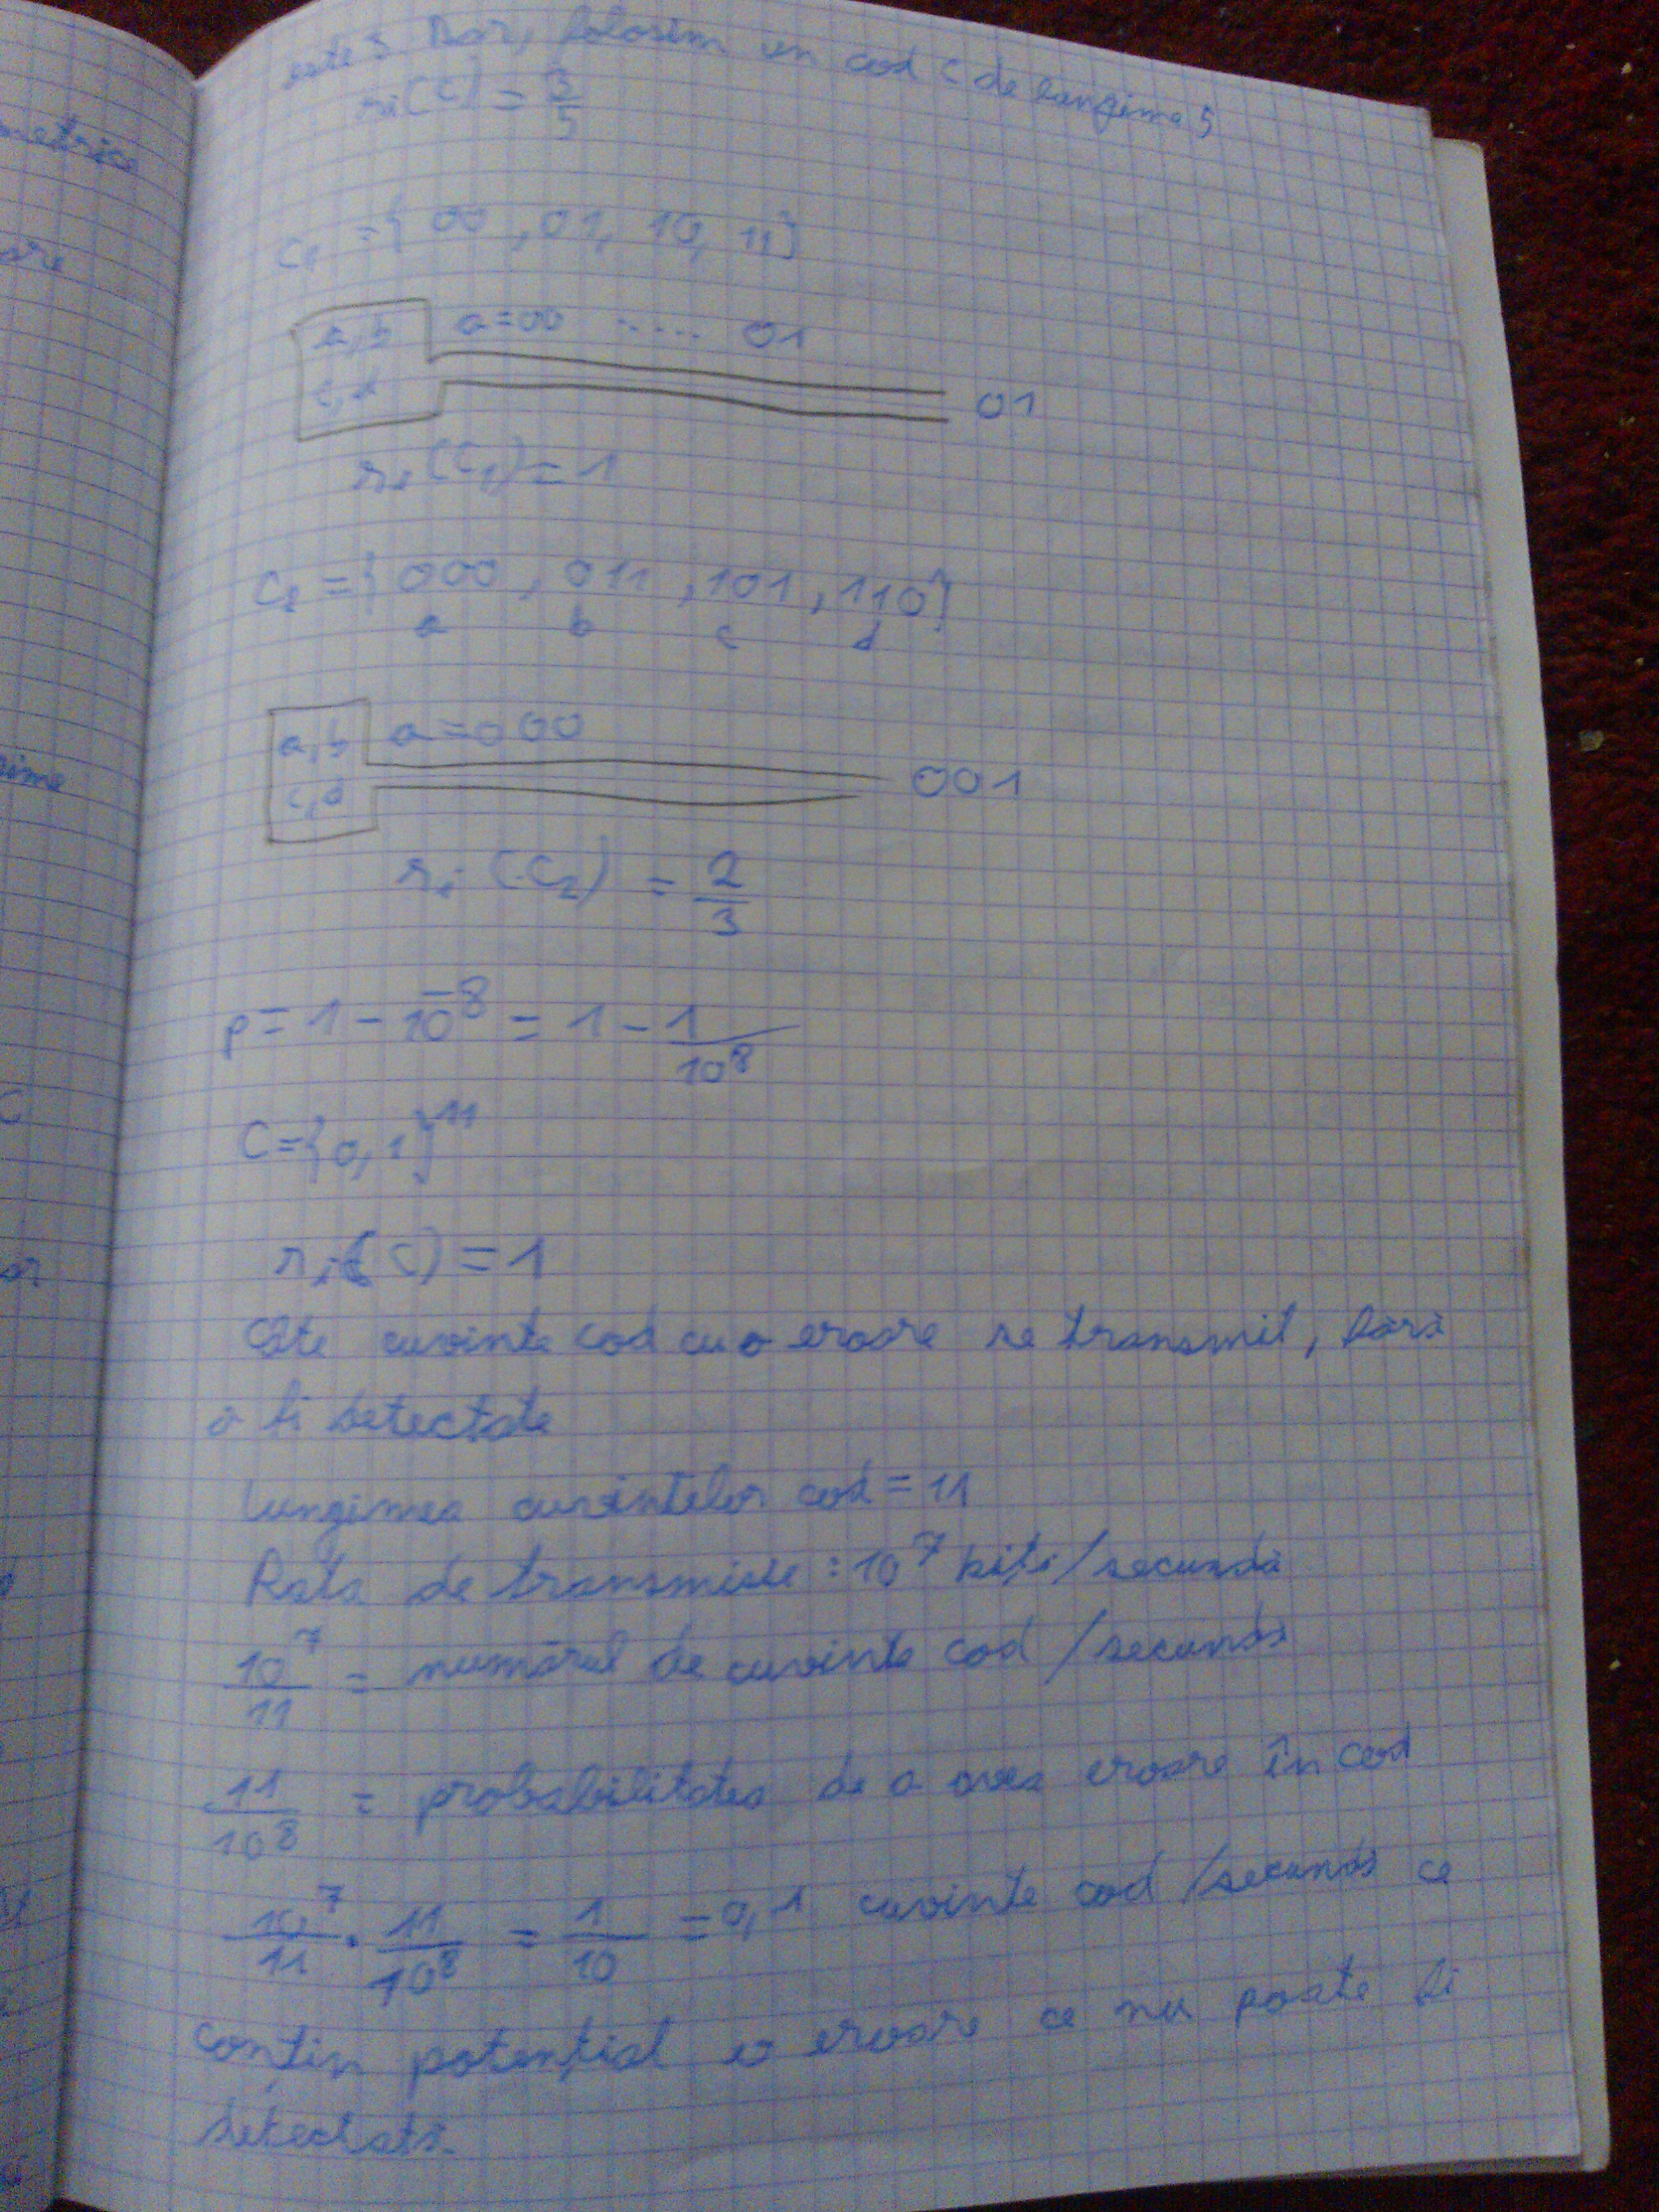 metrice
are
este 3. Dar, folosim un cod C de lungimea 5
ri(C) = 3/5
C1 = { 00, 01, 10, 11}
a,b a=00 ..... 01
c,d
01
ri(C1) = 1
C2 = { 000, 011, 101, 110}
a b c d
a,b a=000
c,d
001
ri(C2) = 2/3
p = 1 - 10^-8 = 1 - 1/10^8
C={0,1}^11
ri(C) = 1
Câte cuvinte cod cu o eroare se transmit, fără
a fi detectate
Lungimea cuvintelor cod = 11
Rata de transmisie: 10^7 biți/secundă
10^7/11 = numărul de cuvinte cod /secundă
11/10^8 = probabilitatea de a avea eroare în cod
10^7/11 · 11/10^8 = 1/10 = 0,1 cuvinte cod /secundă ce
conțin potențial o eroare ce nu poate fi
detectată.